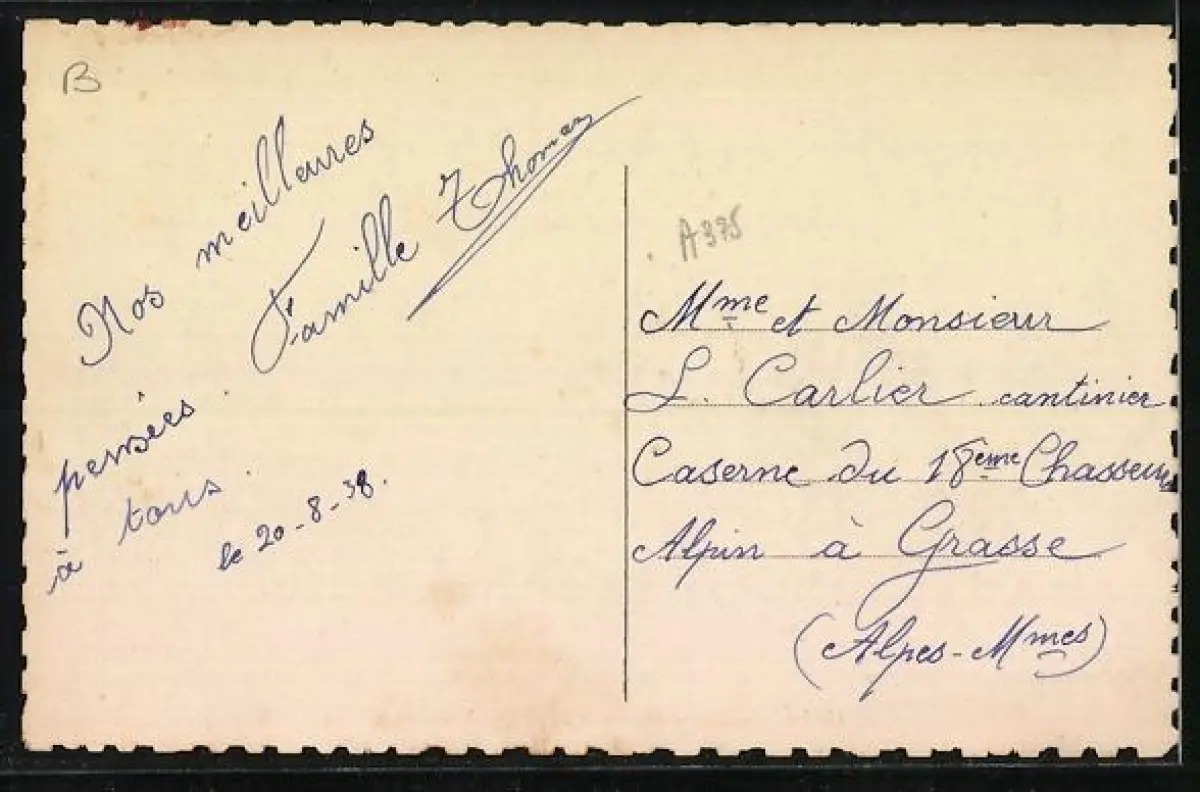 B
Nos meilleures
pensées. Famille Thomas
à tous.
le 20-8-38.
A375
Mme et Monsieur
L. Carlier cantinier
Caserne du 18ème Chasseurs
Alpin à Grasse
(Alpes-Mmes)